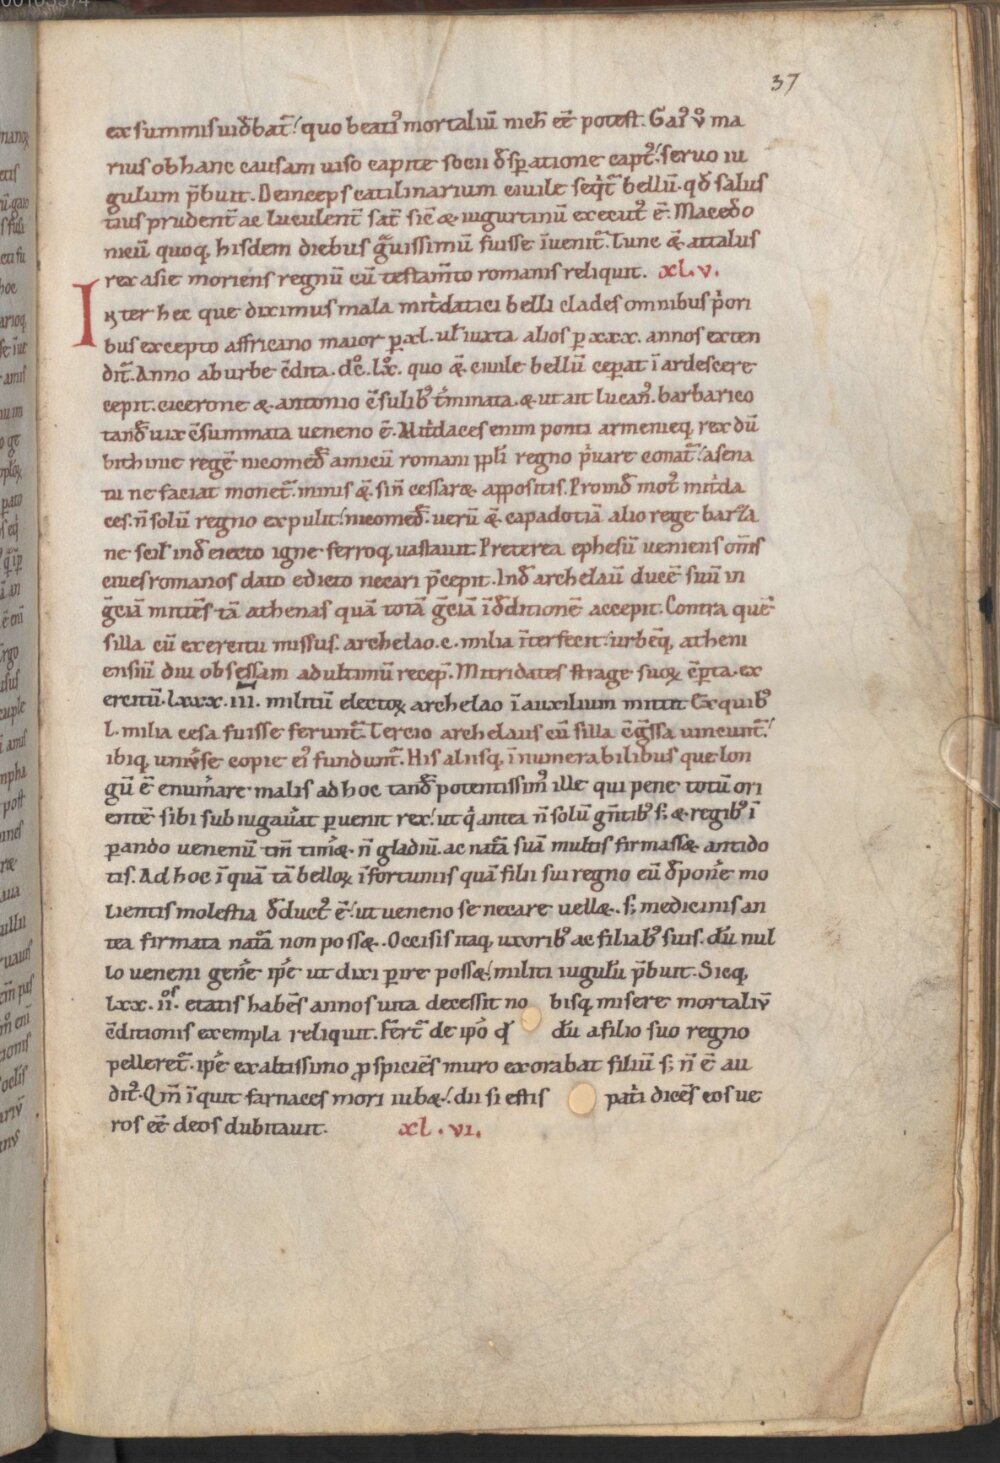 37
ex summis uidebat͛. quo beati᷒ mortaliū nich̄ eē potest. Gai᷒ v̊ ma
rius ob hanc causam uiso capite socii desꝑatione capt᷒. seruo iu
gulum p̄buit. Deinceps catilinarium ciuile seq̇t͛ bellū. qđ salus
tius prudent͛ ac luculent͛ sat͛ sic̄ & iugurtinū execut᷒ ē. Macedo
nicū quoq, hisdem diebus g̃uissimū fuisse īuenit͛. Tunc & attalus
rex asie moriens regnū cū testam̄to romanis reliquit. XL.V.
INter hec que diximus mala mit͛datici belli clades omnibus p̊ori
bus excepto affricano maior ꝑ xl. ut̄ iuxta alios ꝑ xxx. annos exten
dit͛. Anno ab urbe c̄dita. dc̊. lx̊. quo & ciuile bellū ceperat ī ardescere
cepit. cicerone & antonio c̄sulib᷒ t͛minata. & ut ait lucan᷒. barbarico
tandē uix c̄summata ueneno ē. Mit͛daces enim ponti armenieq, rex dū
bithinie regē nicomedē amicū romani ppl̄i regno p̊uare conat͛. a sena
tu ne faciat monet͛. minis &̄. sin̄ cessaræ appositis. Proinde mot᷒ mit͛da
ces. n̄ solū regno expulit. nicomedē. uerū &̄ capadotiā alio rege barza
ne scil̄ inde eiecto igne ferroq, uastauit. Preterea ephesū ueniens om̄s
ciues romanos dato edicto necari p̄cepit. Inde archelaū ducē suū in
g̃ciā mittēs tā athenas quā totā g̃ciā ī dēditionē accepit. Contra quē
silla cū exercitu missus. archelao. c. milia īterfecit. urbēq, atheni
ensiū diu obsessam ad ultimū recep̄. Mitridates strage suoꝝ c̄ꝑta. ex
ercitū. lxxx. III. militū electoꝝ archelao ī auxilium mittit Ex quib᷒
l. milia cesa fuisse ferunt͛. Tercio archelaus cū silla c̄g̃ssa uincunt͛.
ibiq, uniu͛se copie ei᷒ fundunt͛. His aliisq, īnumerabilibus que lon
gū ē enum͛are malis ad hoc tandē potentissim᷒ ille qui pene totū ori
entē sibi subiugau͛at ꝑuenit rex. ut q̇ antea n̄ solū gn̄tib᷒ s; & regib᷒ ī
ꝑando uenenū tm̄ tim͛& n̄ gladiū. ac natā suā multis firmass& antido
tis. Ad hoc ī quā tā belloꝝ īfortuniis quā filii sui regno eū depon͛e mo
lientis molestia deduct᷒ ē. ut ueneno se necare uell&. s; medicinis an
tea firmata natā non poss&. Occisis itaq, uxorib᷒ ac filiab᷒ suis. dū nul
lo ueneni gen͛e ip̄e ut dixi ꝑire poss&. militi iugulū p̄buit. Sicq,
lxx. iio͛s. etatis habēs annos uita decessit no bisq, misere mortaliū
c̄ditionis exempla reliquit. Fērt͛ de ip̄o qđ dū a filio suo regno
pelleret͛. ip̄e ex altissimo ꝓspiciēs muro exorabat filiū s; n̄ ē au
dit᷒. Qm̄ īquit farnaces mori iub&. dii si estis pat͛i dicēs eos ue
ros eē deos dubitauit. XL.VI.